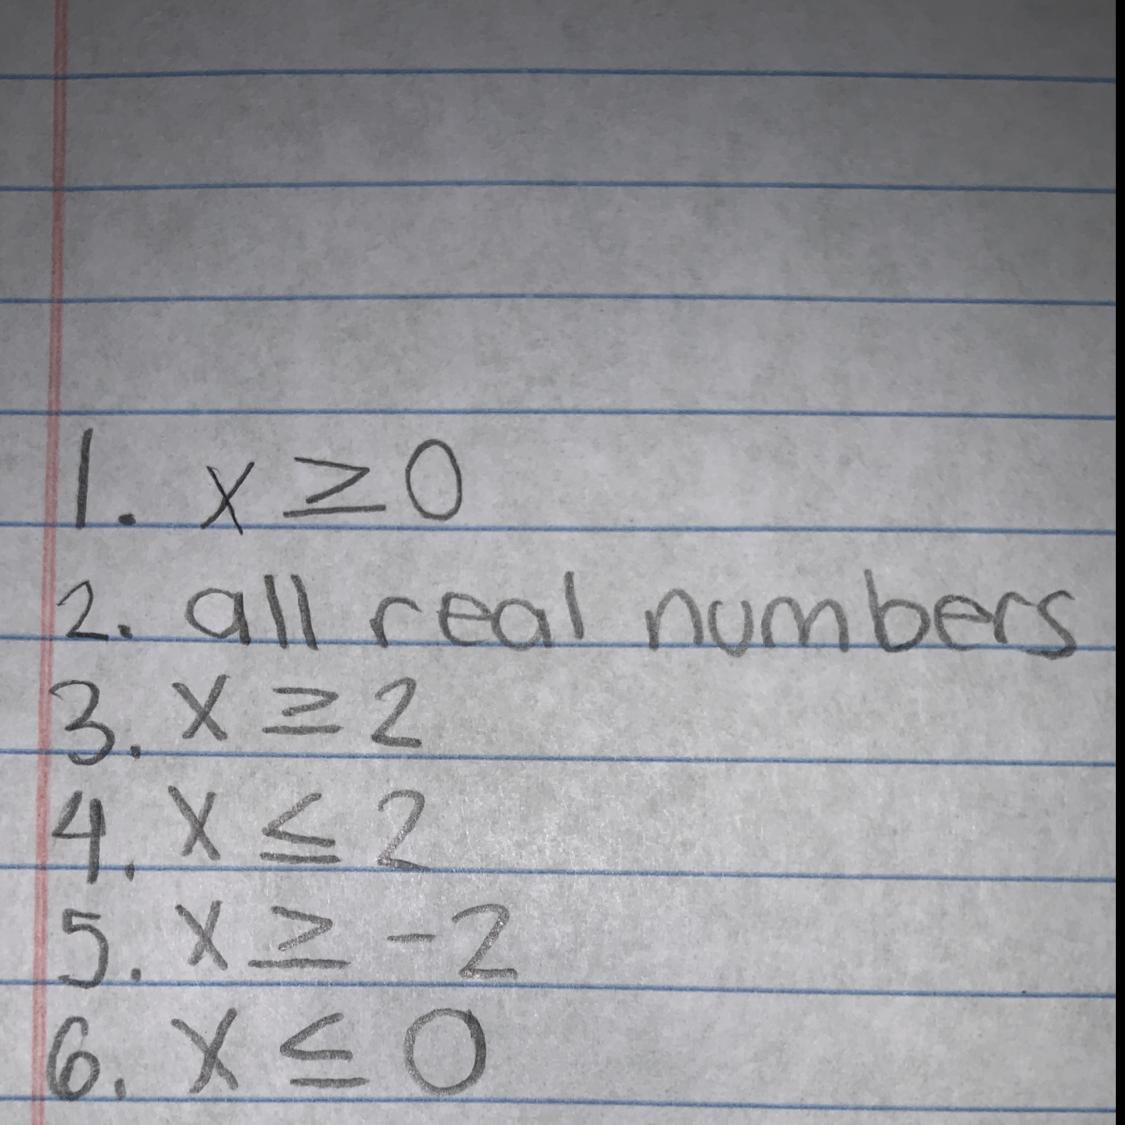 1. x ≥ 0
2. all real numbers
3. x ≥ 2
4. x ≤ 2
5. x ≥ -2
6. x ≤ 0